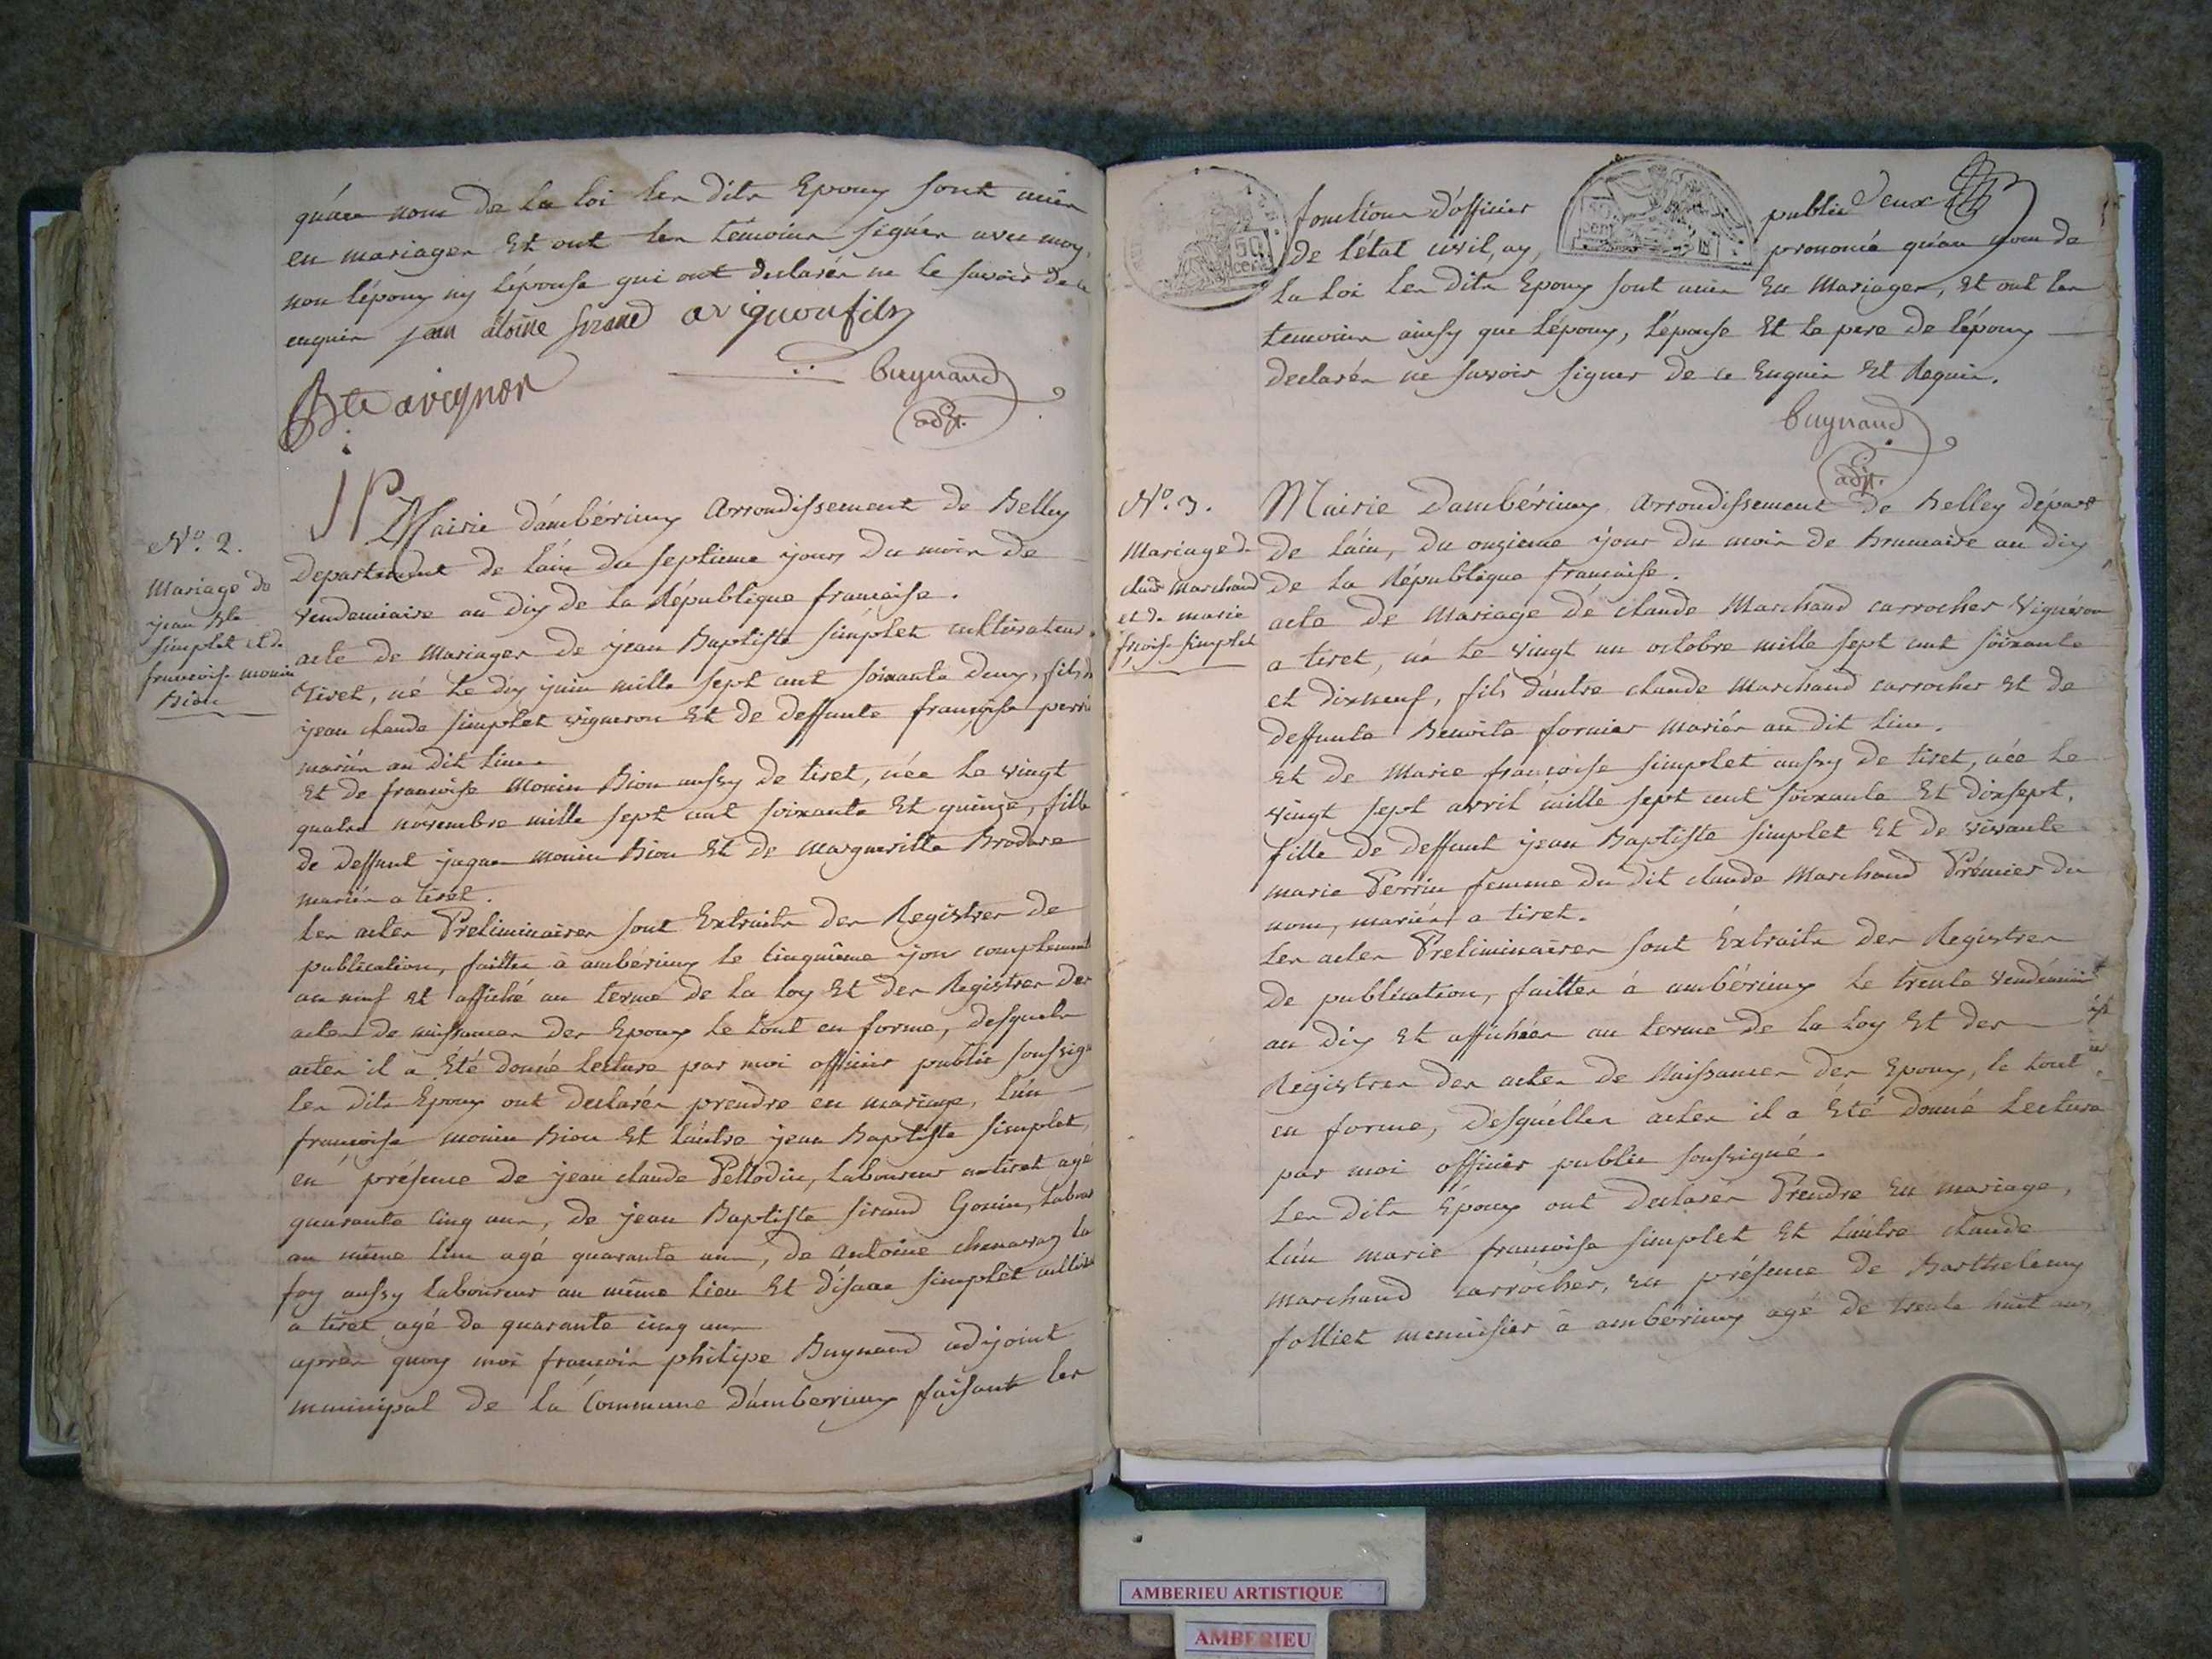 qu'au nom de la loi les dits Epoux sont unis
en mariages Et ont les témoins signés avec moy,
non l'époux ny l'épouse qui ont declarés ne le savoir de ce
enquis jean atoine sirand avignon fils
Bte avignon
buynand
adjt.
N.o 2.
Mariage de
jean Bte
simplet et de
francoise monin
Bion
Mairie d'ambérieux Arrondissement de Belley
Departement de l'ain du septieme jour du mois de
vendemiaire an dix de la République francaise.
acte de Mariages de jean Baptiste simplet cultivateur a
Tiret, né le dix juin mille sept cent soixante deux, fils de
jean claude simplet vigneron Et de deffunte francoise perrin
mariés au dit lieu
Et de francoise Monin Bion aussy de tiret, née le vingt
quatre novembre mille sept cent soixante Et quinze, fille
de deffunt jaques monin Bion Et de Margueritte Brodare
mariés a tiret.
Les actes Preliminaires sont Extraits des Registres de
publication, faittes à amberieux le cinquième jour complement
an neuf et affiché au terme de la loy Et des Registres des
actes de naissances des Epoux le tout en forme, desquels
actes il a Été donné lecture par moi officier public soussigné
Les dits Epoux ont declarés prendre en mariage, l'un
francoise monin Bion Et l'autre jean Baptiste simplet,
en présence de jean claude Pellodin, laboureur a tiret agé
quarante cinq ans, de jean Baptiste sirand Gonin, labour
au même lieu agé quarante ans, de Antoine chenavaz la
foy aussy laboureur au même lieu Et d'isaac simplet cultiv
a tiret agé de quarante cinq ans
après quoy moi francois philipe Buynand adjoint
municipal de la Commune d'amberieux faisant les
fonctions d'officier public deux
de l'état civil, ay, prononcé qu'au nom de
La Loi Les dits Epoux sont unis En Mariages, Et ont les
temoins ainsy que l'époux, l'épouse Et le pere de l'époux
declarés ne savoir signer de ce Enquis Et Requis.
buynand
adjt.
N.o 3.
Mariage de
claude Marchand
et de marie
fcoise simplet
Mairie d'ambérieux Arrondissement de Belley départ
de l'ain, du onzieme jour du mois de Brumaire an dix
de la République francaise.
acte de Mariage de claude Marchand carrocher vigneron
a tiret, né le vingt un octobre mille sept cent soixante
et dixneuf, fils d'autre claude Marchand carrocher Et de
deffunte Benoite fornier mariés au dit lieu.
Et de Marie francoise simplet aussy de tiret, née le
vingt sept avril mille sept cent soixante Et dixsept,
fille de deffunt jean Baptiste simplet Et de vivante
marie Perrin femme du dit claude Marchand Prémier du
nom, mariés a tiret.
Les actes Preliminaires sont Extraits des Registres
de publication, faittes à ambérieux le trente vendémiaire
an dix Et affichées au terme de la loy Et des
Registres des actes de Naissances des Epoux, le tout
en forme, desquelles actes il a Été donné lecture
par moi officier public soussigné.
Les dits Epoux ont declarés Prendre En mariage,
l'un marie francoise simplet Et l'autre claude
marchand carrocher, En présence de Barthelemy
folliet menuisier à ambérieux agé de trente huit ans,
AMBERIEU ARTISTIQUE
AMBERIEU